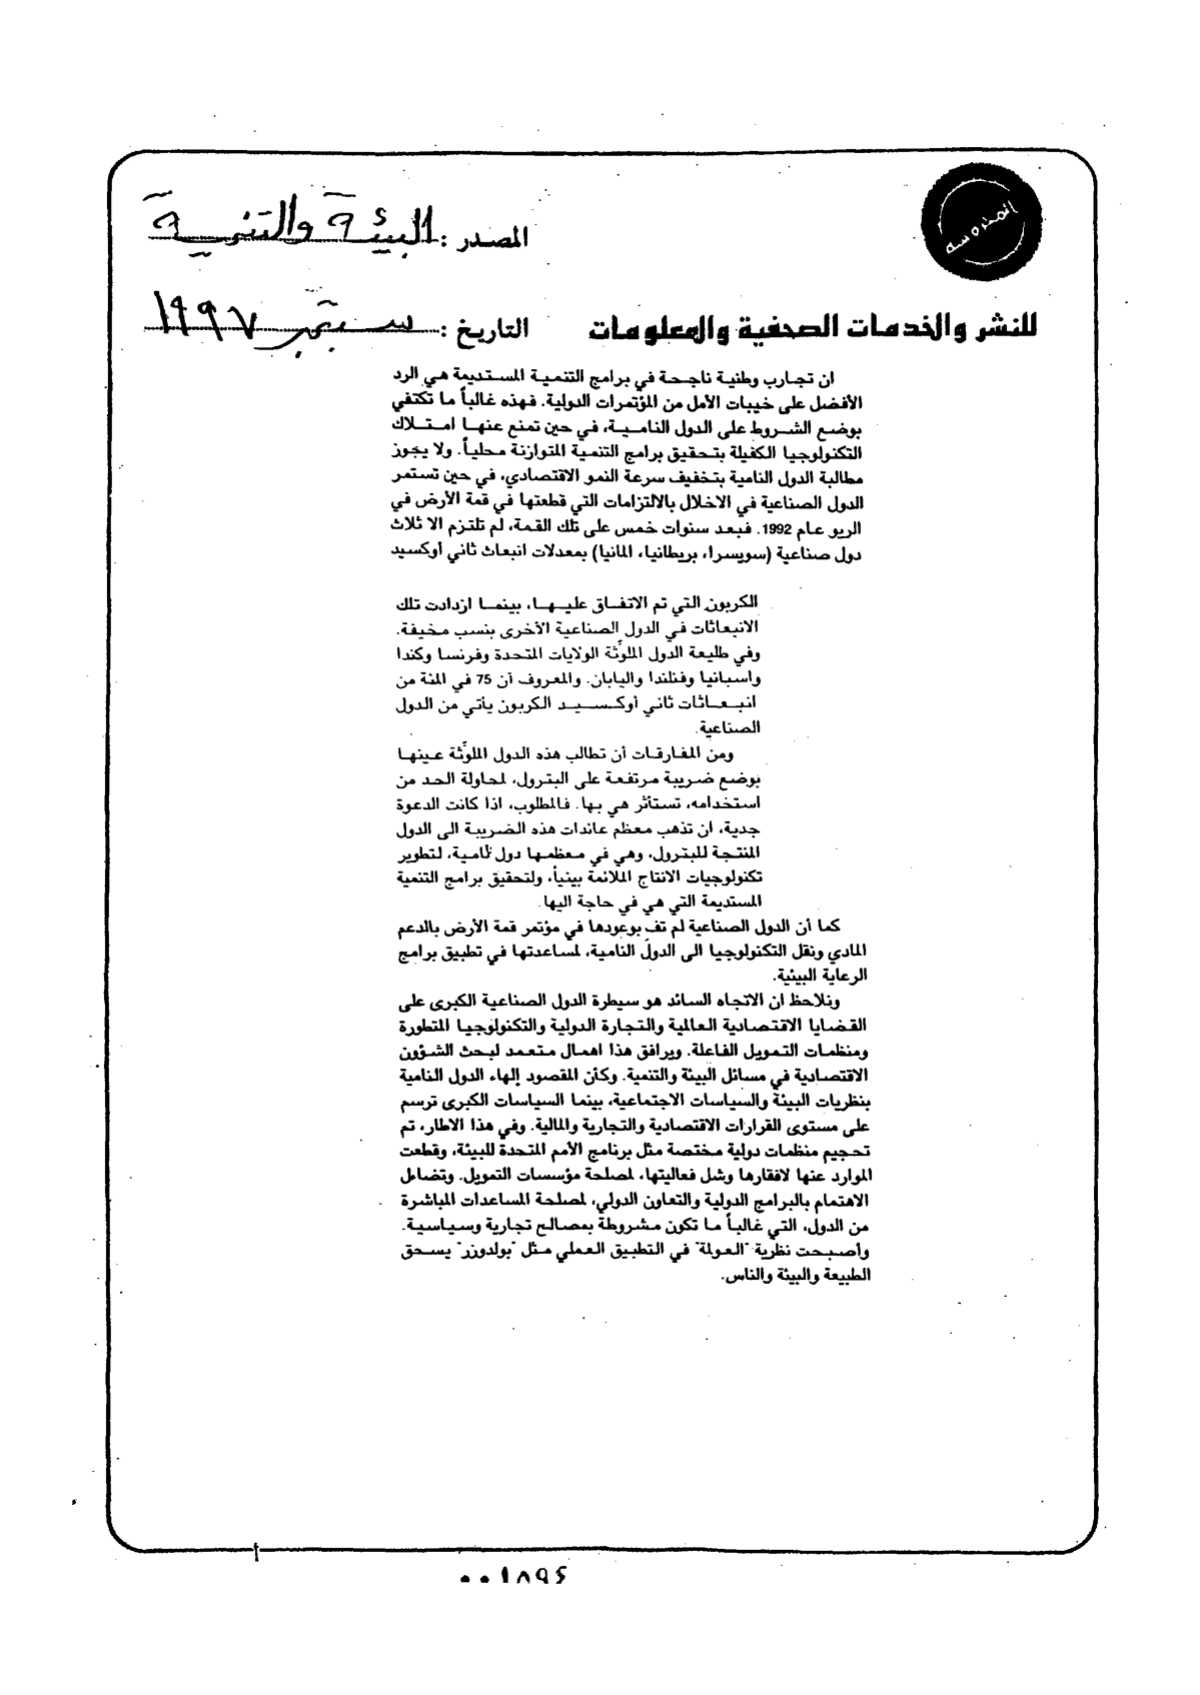 المحروسة
المصدر : البيئة والتنمية
للنشر والخدمات الصحفية والمعلومات
التاريخ : سبتمبر ١٩٩٧
ان تجارب وطنية ناجحة في برامج التنمية المستديمة هي الرد
الأفضل على خيبات الأمل من المؤتمرات الدولية. فهذه غالباً ما تكتفي
بوضع الشروط على الدول النامية، في حين تمنع عنها امتلاك
التكنولوجيا الكفيلة بتحقيق برامج التنمية المتوازنة محلياً. ولا يجوز
مطالبة الدول النامية بتخفيف سرعة النمو الاقتصادي، في حين تستمر
الدول الصناعية في الاخلال بالالتزامات التي قطعتها في قمة الأرض في
الريو عام 1992. فبعد سنوات خمس على تلك القمة، لم تلتزم الا ثلاث
دول صناعية (سويسرا، بريطانيا، المانيا) بمعدلات انبعاث ثاني أوكسيد
الكربون التي تم الاتفاق عليها، بينما ازدادت تلك
الانبعاثات في الدول الصناعية الأخرى بنسب مخيفة.
وفي طليعة الدول الملوّثة الولايات المتحدة وفرنسا وكندا
واسبانيا وفنلندا واليابان. والمعروف أن 75 في المئة من
انبعاثات ثاني أوكسيد الكربون يأتي من الدول
الصناعية.
ومن المفارقات أن تطالب هذه الدول الملوّثة عينها
بوضع ضريبة مرتفعة على البترول، لمحاولة الحد من
استخدامه، تستأثر هي بها. فالمطلوب، اذا كانت الدعوة
جدية، أن تذهب معظم عائدات هذه الضريبة الى الدول
المنتجة للبترول، وهي في معظمها دول نامية، لتطوير
تكنولوجيات الانتاج الملائمة بيئياً، ولتحقيق برامج التنمية
المستديمة التي هي في حاجة اليها.
كما أن الدول الصناعية لم تف بوعودها في مؤتمر قمة الأرض بالدعم
المادي ونقل التكنولوجيا الى الدول النامية، لمساعدتها في تطبيق برامج
الرعاية البيئية.
ونلاحظ ان الاتجاه السائد هو سيطرة الدول الصناعية الكبرى على
القضايا الاقتصادية العالمية والتجارة الدولية والتكنولوجيا المتطورة
ومنظمات التمويل الفاعلة. ويرافق هذا اهمال متعمد لبحث الشؤون
الاقتصادية في مسائل البيئة والتنمية. وكأن المقصود إلهاء الدول النامية
بنظريات البيئة والسياسات الاجتماعية، بينما السياسات الكبرى ترسم
على مستوى القرارات الاقتصادية والتجارية والمالية. وفي هذا الاطار، تم
تحجيم منظمات دولية مختصة مثل برنامج الأمم المتحدة للبيئة، وقطعت
الموارد عنها لافقارها وشل فعاليتها، لمصلحة مؤسسات التمويل. وتضاءل
الاهتمام بالبرامج الدولية والتعاون الدولي، لمصلحة المساعدات المباشرة
من الدول، التي غالباً ما تكون مشروطة بمصالح تجارية وسياسية.
وأصبحت نظرية "العولمة" في التطبيق العملي مثل "بولدوزر" يسحق
الطبيعة والبيئة والناس.
٠٠١٨٩٤